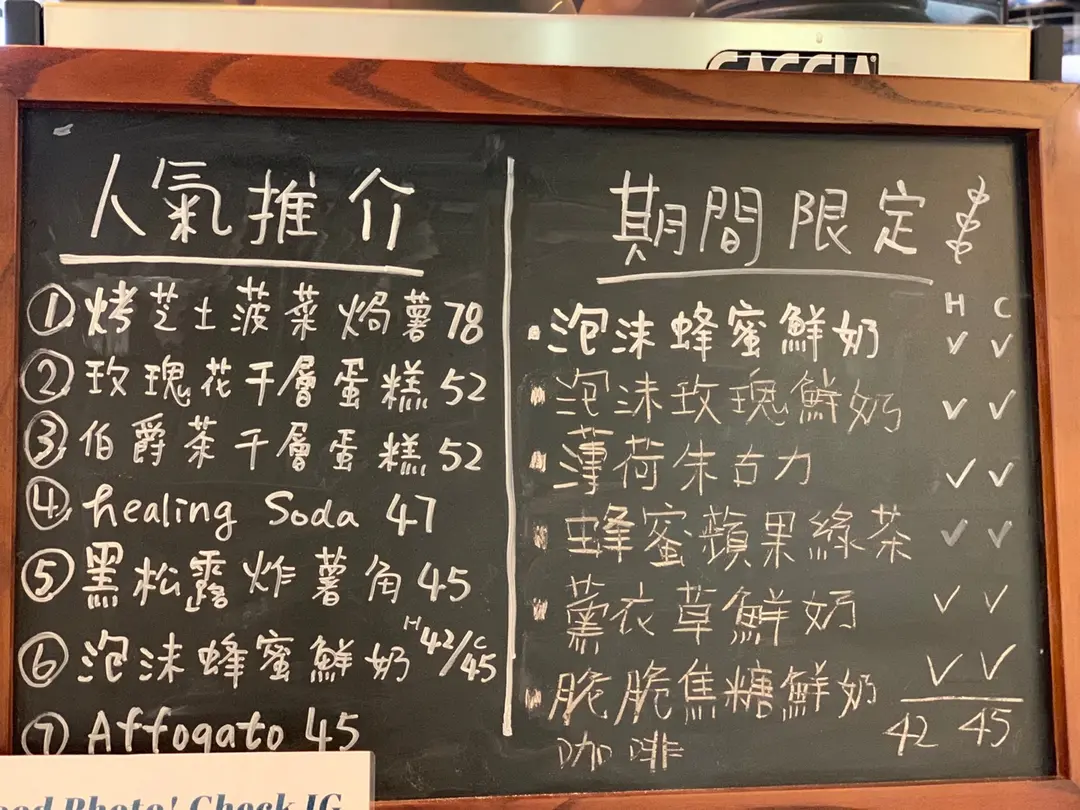 GAGGIA
人氣推介
① 烤芝士菠菜焗薯 78
② 玫瑰花千層蛋糕 52
③ 伯爵茶千層蛋糕 52
④ healing Soda 47
⑤ 黑松露炸薯角 45
⑥ 泡沫蜂蜜鮮奶 H42/C45
⑦ Affogato 45
期間限定
H C
泡沫蜂蜜鮮奶 ✓ ✓
泡沫玫瑰鮮奶 ✓ ✓
薄荷朱古力 ✓ ✓
蜂蜜蘋果綠茶 ✓ ✓
薰衣草鮮奶 ✓ ✓
脆脆焦糖鮮奶 ✓ ✓
咖啡 42 45
Photo! Check IG